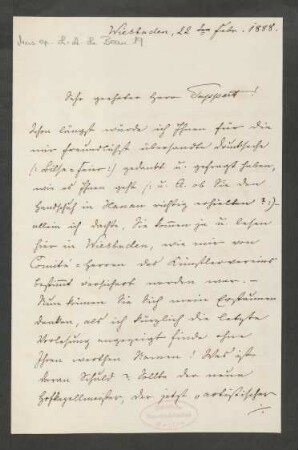 Wiesbaden, 22ten Febr. 1888.
Sehr geehrter Herr Tappert!
Schon längst würde ich Ihnen für die
mir freundlichst übersandte
gedankt u. gefragt haben,
wie es Ihnen geht (: u. A. ob Sie den
Handschuh in Hanau richtig erhielten? :)
allein ich dachte, Sie kommen ja u. lesen
hier in Wiesbaden, wie mir von
Comité-Herren des Künstlervereins
bestimmt versichert worden war.
Nun können Sie sich mein Erstaunen
denken, als ich kürzlich die letzte
Vorlesung angezeigt finde ohne
Ihren werthen Namen! Was ist
daran Schuld? Sollte der neue
Hofkapellmeister, der jetzt „artistischer